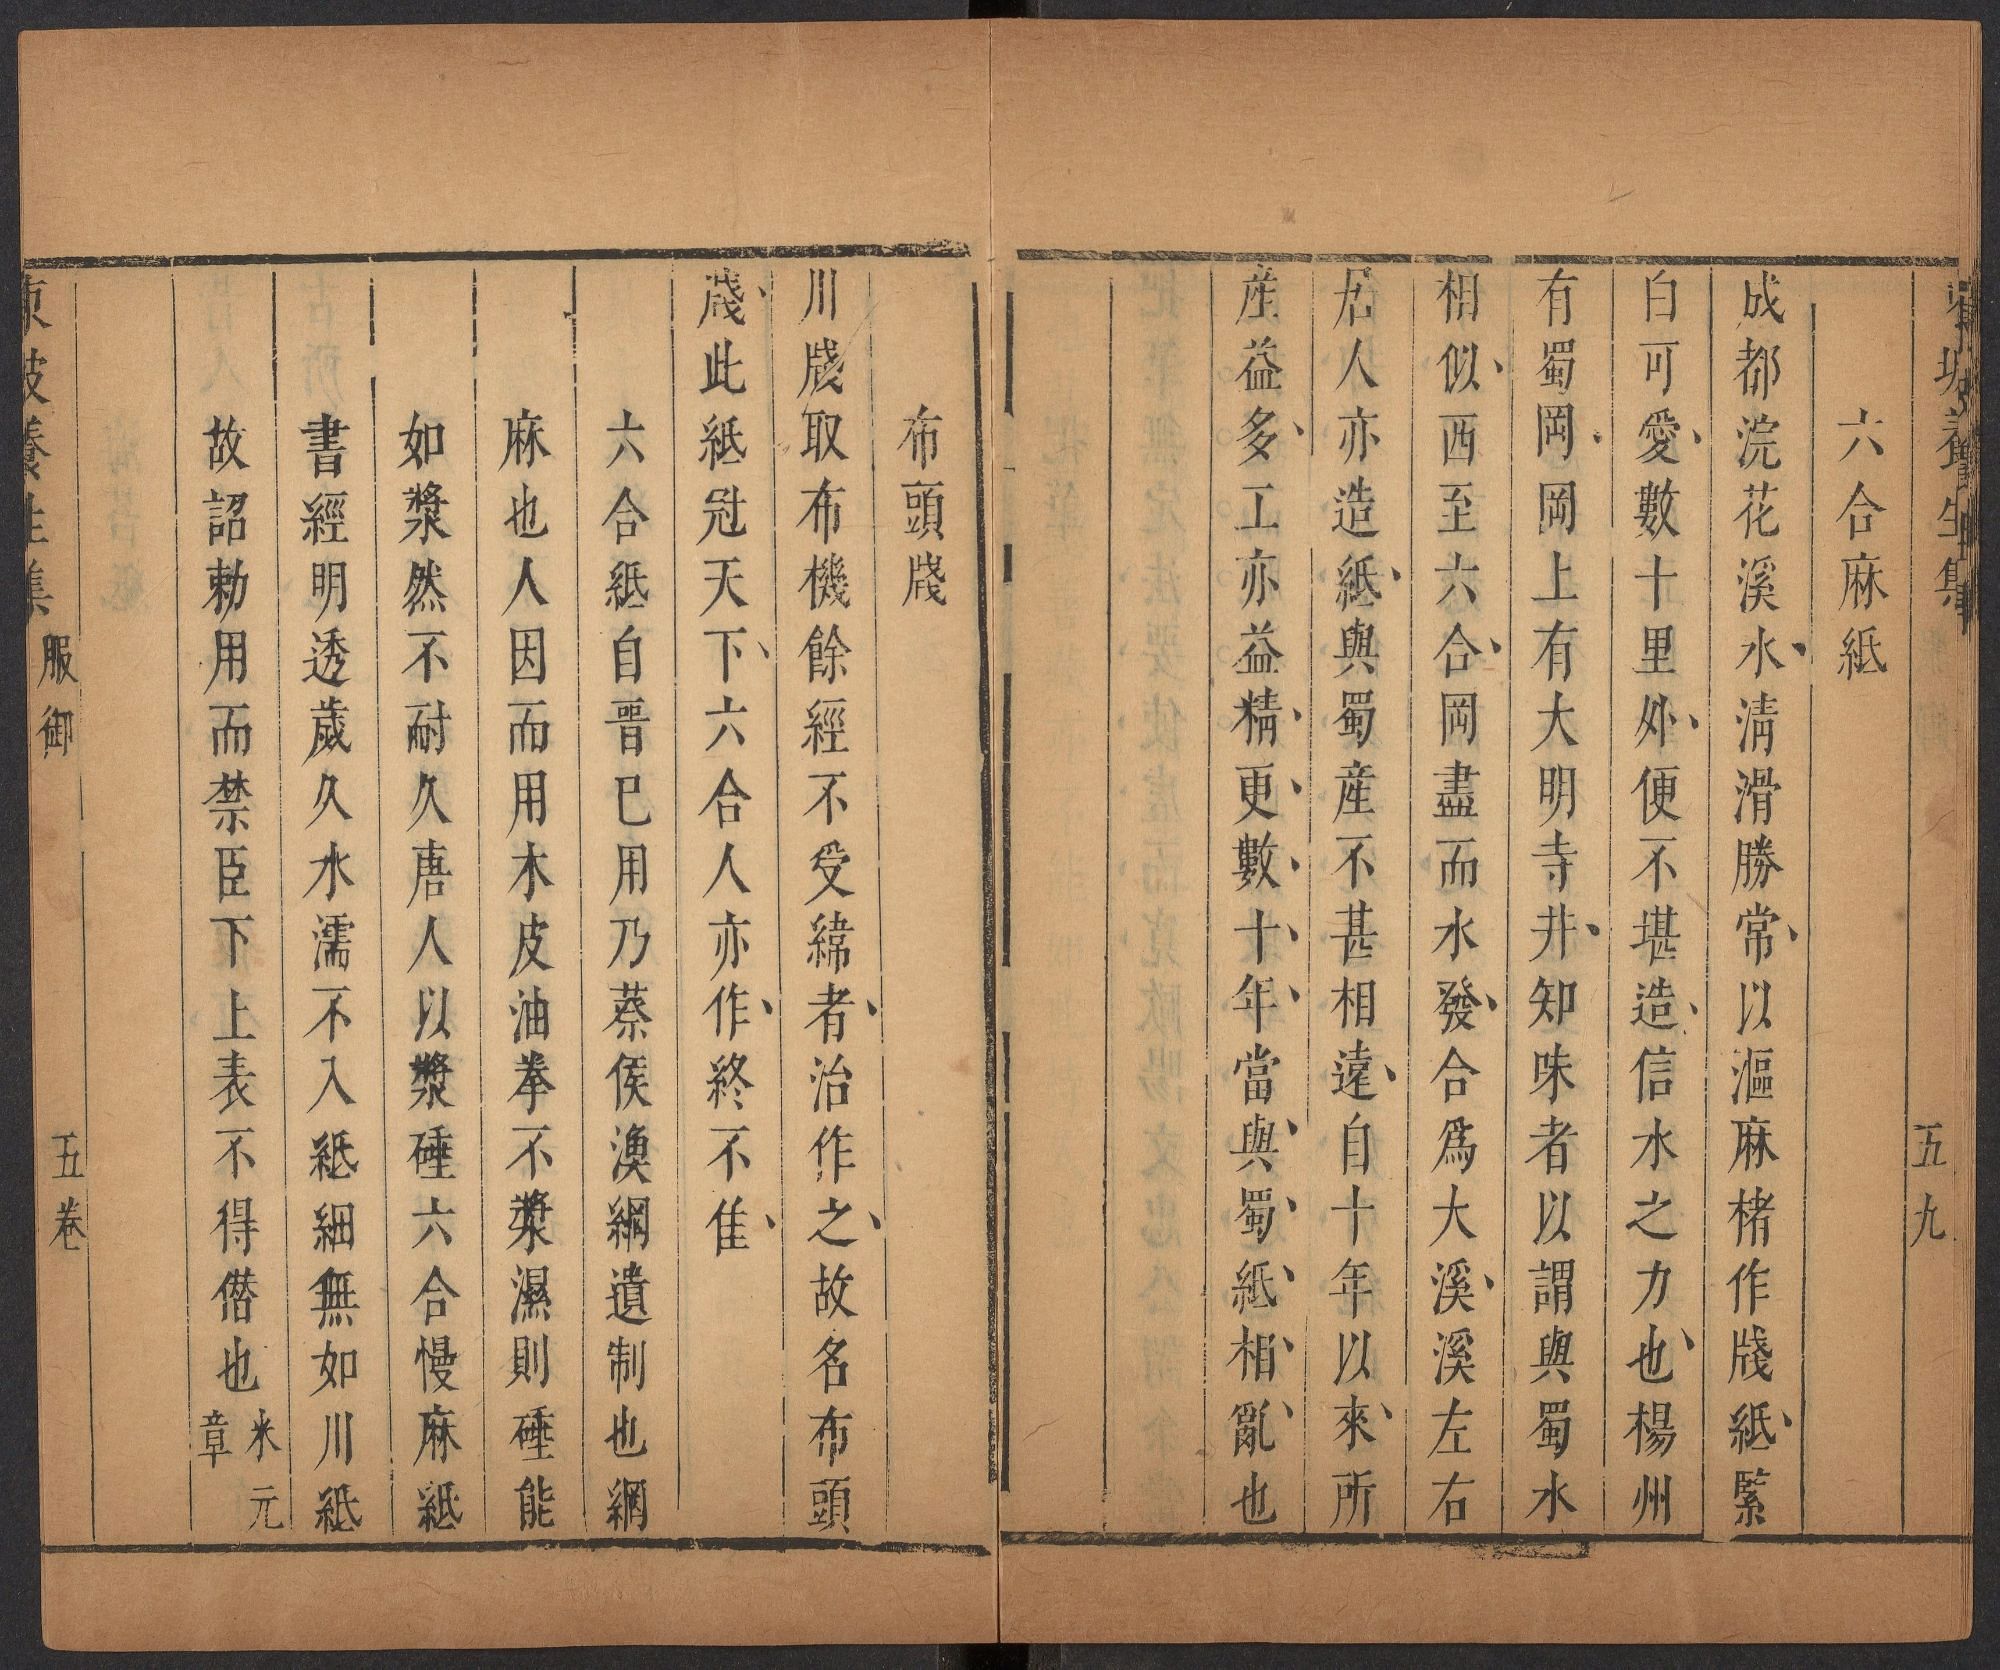 東坡養生集
五
九
六合麻紙
成都浣花溪水清滑勝常以漚麻楮作牋紙緊
白可愛數十里外便不堪造信水之力也楊州
有蜀岡岡上有大明寺井知味者以謂與蜀水
相似西至六合岡盡而水發合爲大溪溪左右
居人亦造紙與蜀産不甚相遠自十年以來所
産益多工亦益精更數十年當與蜀紙相亂也
布頭牋
川牋取布機餘經不受緯者治作之故名布頭
牋此紙冠天下六合人亦作終不佳
六合紙自晉已用乃蔡侯漁網遺制也網
麻也人因而用木皮油拳不漿濕則硾能
如漿然不耐久唐人以漿硾六合慢麻紙
書經明透歲久水濡不入紙細無如川紙
故詔勅用而禁臣下上表不得僭也米元
章
東坡養生集
服御
五卷